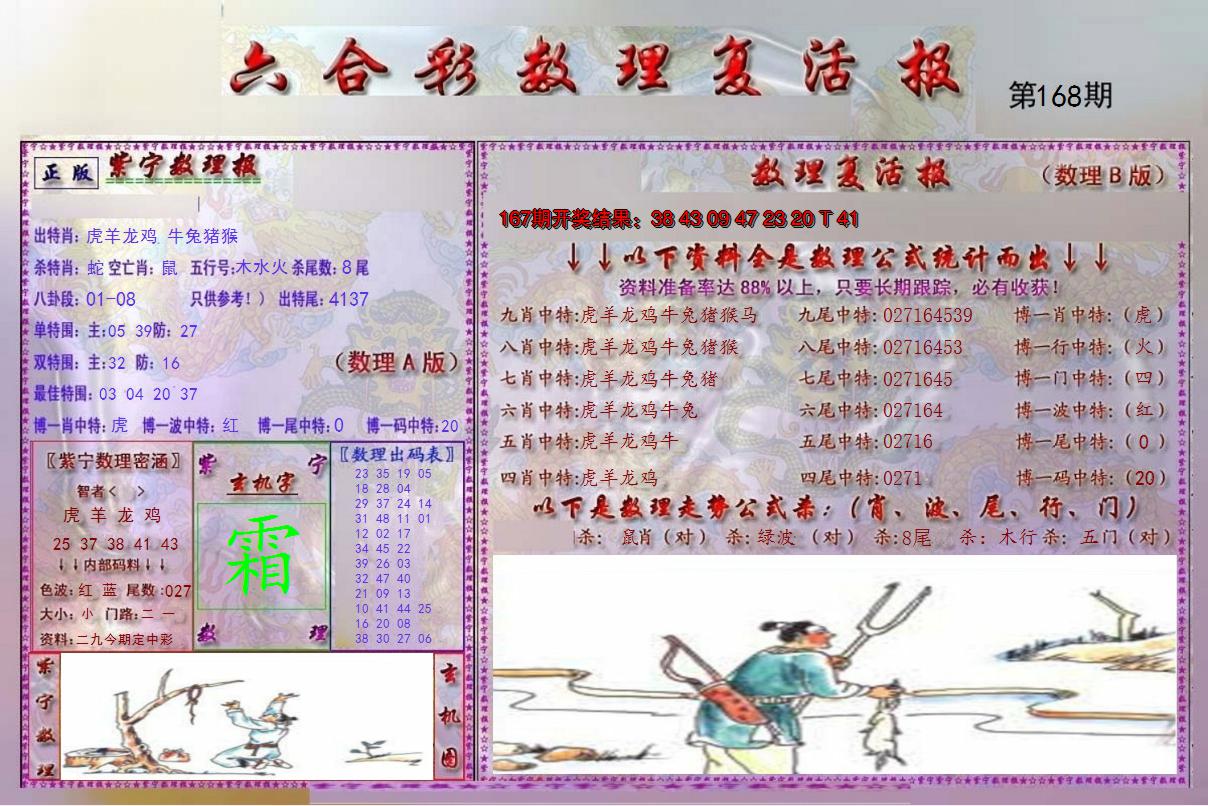 六合彩数理复活报
第168期
正版 紫宁数理报
出特肖: 虎羊龙鸡 牛兔猪猴
杀特肖: 蛇 空亡肖: 鼠 五行号:木水火 杀尾数: 8 尾
八卦段: 01-08 只供参考!） 出特尾: 4137
单特围: 主:05 39防: 27
双特围: 主:32 防: 16
（数理A版）
最佳特围: 03 04 20 37
博一肖中特: 虎 博一波中特: 红 博一尾中特: 0 博一码中特:20
〖紫宁数理密涵〗
智者< >
虎 羊 龙 鸡
25 37 38 41 43
↓↓内部码料↓↓
色波: 红 蓝 尾数:027
大小: 小 门路:二 一
资料:二九今期定中彩
紫宁
玄机字
霜
数理
〖数理出码表〗
23 35 19 05
18 28 04
29 37 24 14
31 48 11 01
12 02 17
34 45 22
39 26 03
32 47 40
21 09 13
10 41 44 25
16 20 08
38 30 27 06
紫宁数理
玄机图
数理复活报
（数理B版）
167期开奖结果: 38 43 09 47 23 20 T 41
↓↓以下资料全是数理公式统计而出↓↓
资料准备率达 88% 以上，只要长期跟踪，必有收获！
九肖中特:虎羊龙鸡牛兔猪猴马 九尾中特: 027164539 博一肖中特:（虎）
八肖中特:虎羊龙鸡牛兔猪猴 八尾中特: 02716453 博一行中特:（火）
七肖中特:虎羊龙鸡牛兔猪 七尾中特: 0271645 博一门中特:（四）
六肖中特:虎羊龙鸡牛兔 六尾中特: 027164 博一波中特:（红）
五肖中特:虎羊龙鸡牛 五尾中特: 02716 博一尾中特:（0）
四肖中特:虎羊龙鸡 四尾中特: 0271 博一码中特:（20）
以下是数理走势公式杀:（肖、波、尾、行、门）
杀: 鼠肖（对） 杀: 绿波 （对） 杀:8尾 杀: 木行 杀: 五门（对）